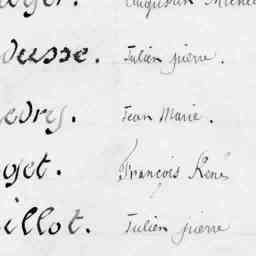 Augustin Michel
ousse. Julien pierre.
edry. Jean Marie.
oget. François René
illot. Julien pierre